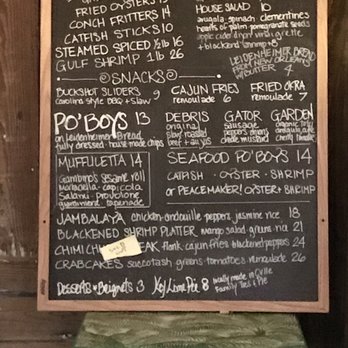 FRIED OYSTERS 15
CONCH FRITTERS 14
CATFISH STICKS 10
STEAMED SPICED ½lb 16
GULF SHRIMP 1lb 26
HOUSE SALAD 10
arugula, spinach, clementines
hearts of palm, pomegranate seeds
apple cider vinaigrette
+ blackened shrimp +8
LEIDENHEIMER BREAD
FROM NEW ORLEANS
W/BUTTER 4
SNACKS
BUCKSHOT SLIDERS 9
Carolina style BBQ + Slaw
CAJUN FRIES
remoulade 6
FRIED OKRA
remoulade 7
PO'BOYS 13
on Leidenheimer Bread
fully dressed · house made chips
DEBRIS
original
slow roasted
beef + au jus
GATOR
sausage
peppers onions
creole mustard
GARDEN
cherry tomatoes
MUFFULETTA 14
Gambino's sesame roll
Mortadella capicola
Salami provolone
giardiniera tapenade
SEAFOOD PO'BOYS 14
CATFISH · OYSTER · SHRIMP
or PEACEMAKER! OYSTER + SHRIMP
JAMBALAYA chicken andouille peppers, jasmine rice 18
BLACKENED SHRIMP PLATTER mango salad greens rice 21
CHIMICHURRI STEAK flank cajun fries blackened peppers 24
CRABCAKES succotash greens tomatoes remoulade 26
DESSERTS Beignets 3 Key Lime Pie 8 locally made in
Family Ties & Pie